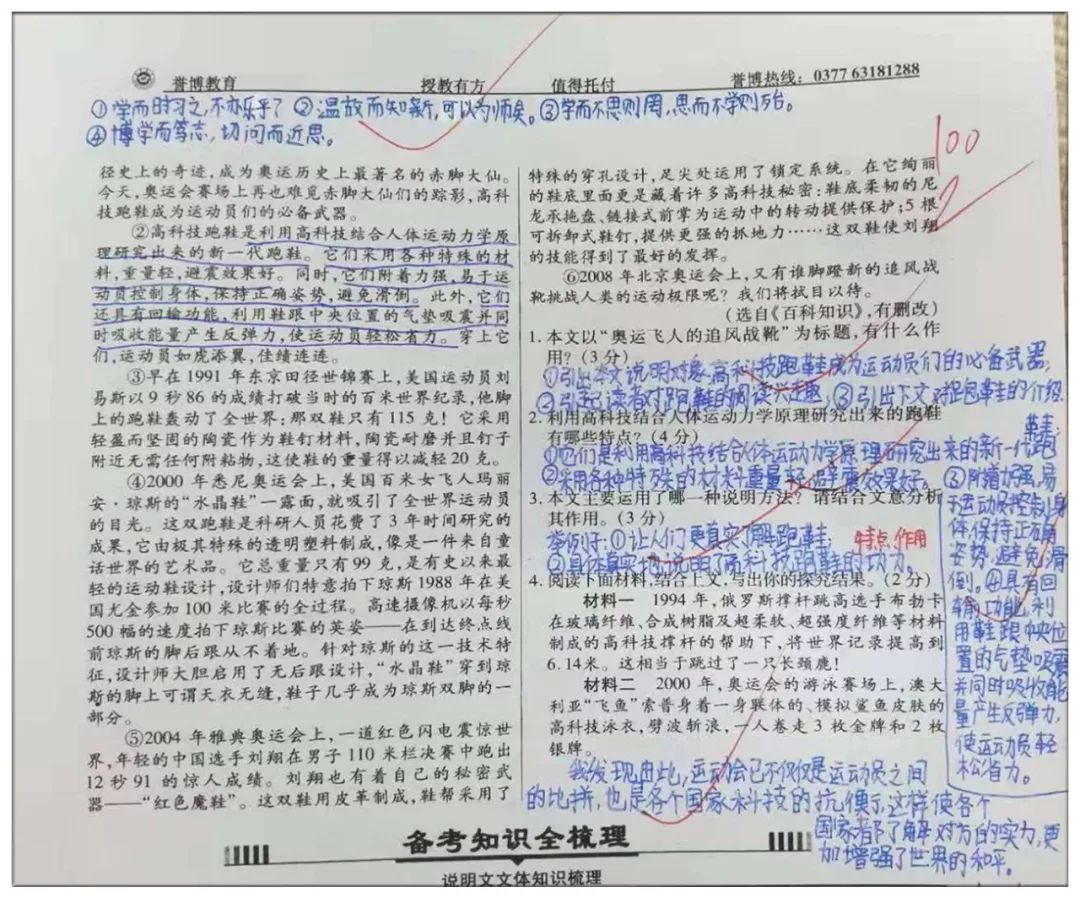 誉博教育 授教有方 值得托付 誉博热线：0377 63181288
①学而时习之，不亦乐乎？②温故而知新，可以为师矣。③学而不思则罔，思而不学则殆。
④博学而笃志，切问而近思。
100
2
径史上的奇迹，成为奥运历史上最著名的赤脚大仙。
今天，奥运会赛场上再也难觅赤脚大仙们的踪影，高科
技跑鞋成为运动员们的必备武器。
②高科技跑鞋是利用高科技结合人体运动力学原
理研究出来的新一代跑鞋。它们采用各种特殊的材
料，重量轻，避震效果好。同时，它们附着力强，易于运
动员控制身体，保持正确姿势，避免滑倒。此外，它们
还具有回输功能，利用鞋跟中央位置的气垫吸震并同
时吸收能量产生反弹力，使运动员轻松省力。穿上它
们，运动员如虎添翼，佳绩连连。
③早在 1991 年东京田径世锦赛上，美国运动员刘
易斯以 9 秒 86 的成绩打破当时的百米世界纪录，他脚
上的跑鞋轰动了全世界：那双鞋只有 115 克！它采用
轻盈而坚固的陶瓷作为鞋钉材料，陶瓷耐磨并且钉子
附近无需任何附粘物，这使鞋的重量得以减轻 20 克。
④2000 年悉尼奥运会上，美国百米女飞人玛丽
安·琼斯的“水晶鞋”一露面，就吸引了全世界运动员
的目光。这双跑鞋是科研人员花费了 3 年时间研究的
成果，它由极其特殊的透明塑料制成，像是一件来自童
话世界的艺术品。它总重量只有 99 克，是有史以来最
轻的运动鞋设计，设计师们特意拍下琼斯 1988 年在美
国尤金参加 100 米比赛的全过程。高速摄像机以每秒
500 幅的速度拍下琼斯比赛的英姿——在到达终点线
前琼斯的脚后跟从不着地。针对琼斯的这一技术特
征，设计师大胆启用了无后跟设计，“水晶鞋”穿到琼
斯的脚上可谓天衣无缝，鞋子几乎成为琼斯双脚的一
部分。
⑤2004 年雅典奥运会上，一道红色闪电震惊世
界，年轻的中国选手刘翔在男子 110 米栏决赛中跑出
12 秒 91 的惊人成绩。刘翔也有着自己的秘密武
器——“红色魔鞋”。这双鞋用皮革制成，鞋帮采用了
特殊的穿孔设计，足尖处运用了锁定系统。在它绚丽
的鞋底里面更是藏着许多高科技秘密：鞋底柔韧的尼
龙承拖盘、链接式前掌为运动中的转动提供保护；5 根
可拆卸式鞋钉，提供更强的抓地力……这双鞋使刘翔
的技能得到了最好的发挥。
⑥2008 年北京奥运会上，又有谁脚蹬新的追风战
靴挑战人类的运动极限呢？我们将拭目以待。
（选自《百科知识》，有删改）
1. 本文以“奥运飞人的追风战靴”为标题，有什么作
用？（3 分）
①引出本文说明对象高科技跑鞋成为运动员们的必备武器；
②引起读者对跑鞋的阅读兴趣；③引出下文对跑鞋的介绍
2. 利用高科技结合人体运动力学原理研究出来的跑鞋
有哪些特点？（4 分）
①它们是利用高科技结合人体运动力学原理研究出来的新一代跑
鞋；
②采用各种特殊的材料重量轻，避震效果好。
③附着力强，易
于运动员控制身
体，保持正确
姿势，避免滑
倒。④具有回
输功能，利
用鞋跟中央位
置的气垫吸震
并同时吸收能
量产生反弹力，
使运动员轻
松省力。
3. 本文主要运用了哪一种说明方法？请结合文意分析
其作用。（3 分）
举例子：①让人们更真实了解跑鞋；
特点、作用
②具体真实地说明了高科技跑鞋的功力。
4. 阅读下面材料，结合上文，写出你的探究结果。（2 分）
材料一 1994 年，俄罗斯撑杆跳高选手布勃卡
在玻璃纤维、合成树脂及超柔软、超强度纤维等材料
制成的高科技撑杆的帮助下，将世界记录提高到
6.14米。这相当于跳过了一只长颈鹿！
材料二 2000 年，奥运会的游泳赛场上，澳大
利亚“飞鱼”索普身着一身联体的、模拟鲨鱼皮肤的
高科技泳衣，劈波斩浪，一人卷走 3 枚金牌和 2 枚
银牌。
我发现由此，运动会已不仅仅是运动员之间
的比拼，也是各个国家科技的抗衡，这样使各个
国家都了解对方的实力，更
加增强了世界的和平。
备考知识全梳理
说明文文体知识梳理